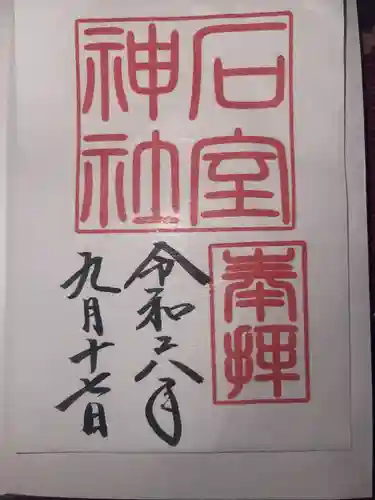 石室
神社
奉拝
令和六年
九月十七日